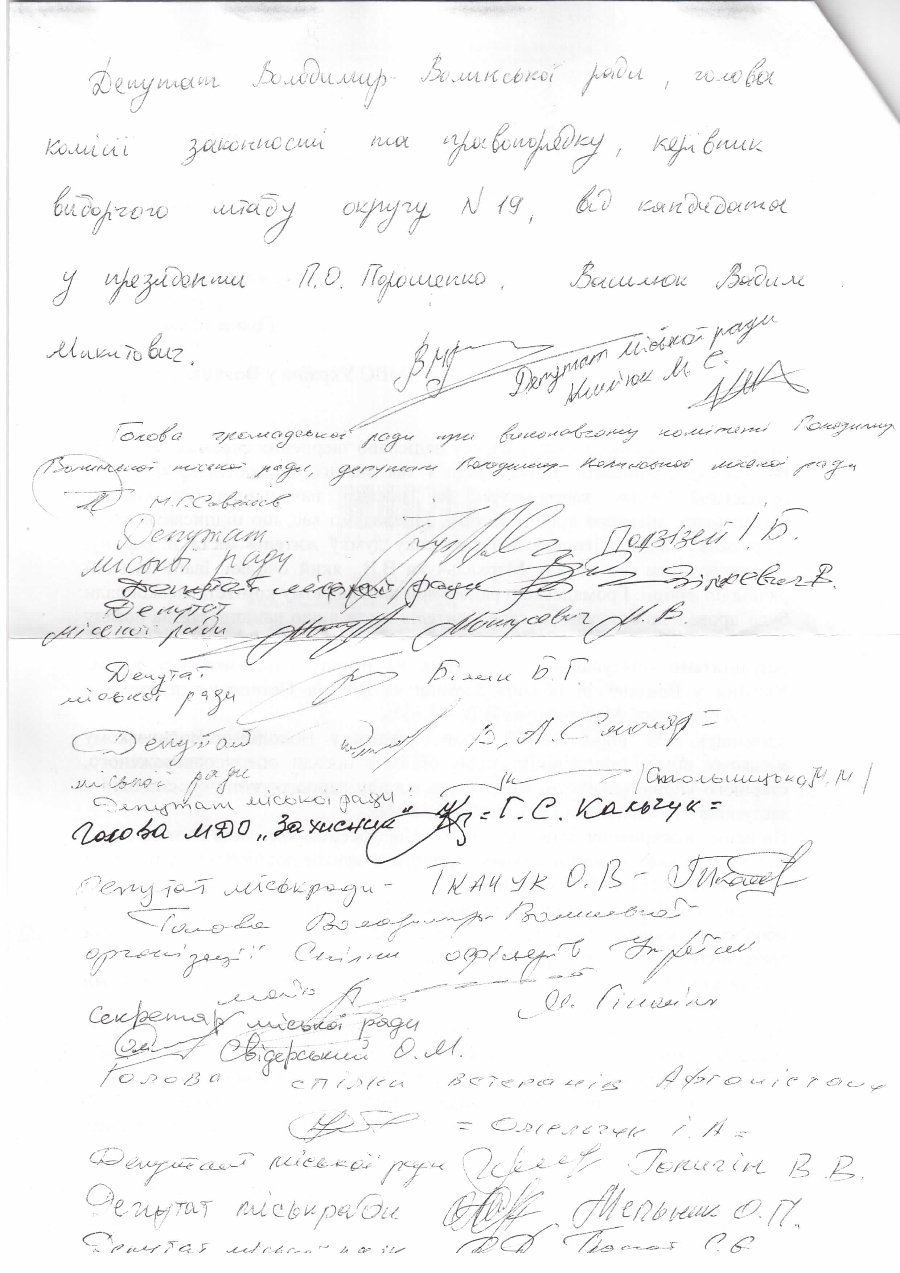 Депутат Володимир-Волинської ради, голова
комісії законності та правопорядку, керівник
виборчого штабу округу N 19, від кандидата
у президенти П.О. Порошенко. Василюк Вадим
Микитович.
Депутат міської ради
М. С.
Голова громадської ради при виконавчому комітеті Володимир
Волинської міської ради, депутат Володимир-Волинської міської ради
М.Г.
Депутат
міської ради
І. Б.
Депутат міської ради Зінкевич В.
Депутат
міської ради М. В.
Депутат
міської ради Б. Г.
Депутат В. А. Столяр =
міської ради
Депутат міської ради:
Голова МДО „Захисник" = Г. С. Кальчук =
Депутат міськради - Ткачук О. В -
Голова Володимир-Волинської
організації Спілки офіцерів України
Секретар міської ради
Свідерський О. М.
Голова спілки ветеранів Афганістану
= Омельчук І. А =
Депутат міської ради В. В.
Депутат міськради Мельник О. П.
Депутат міської ради